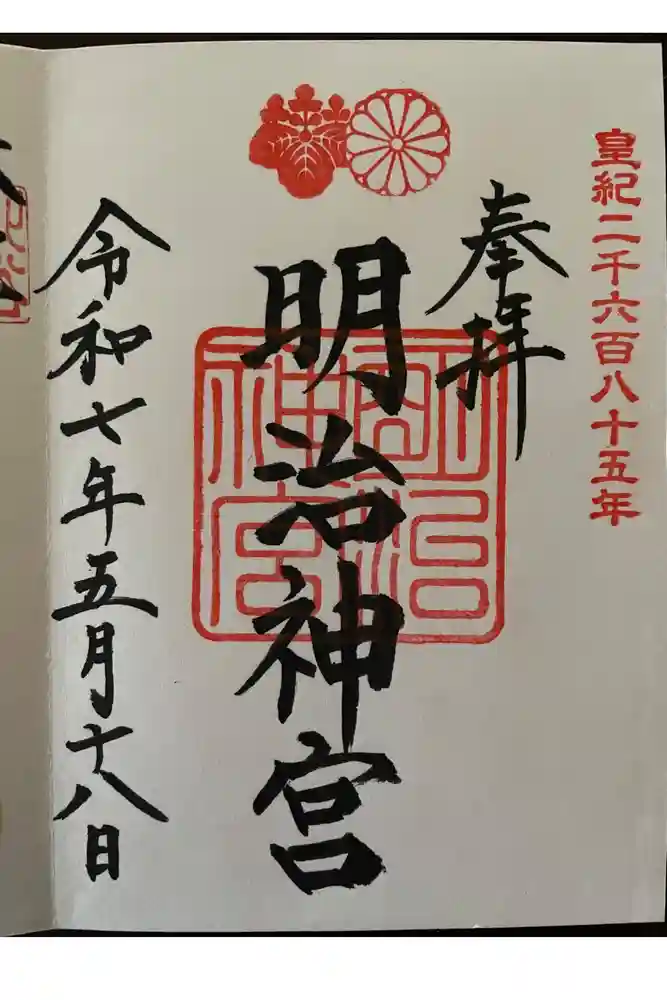 皇紀二千六百八十五年
奉拝
明治神宮
明治
神宮
令和七年五月十八日